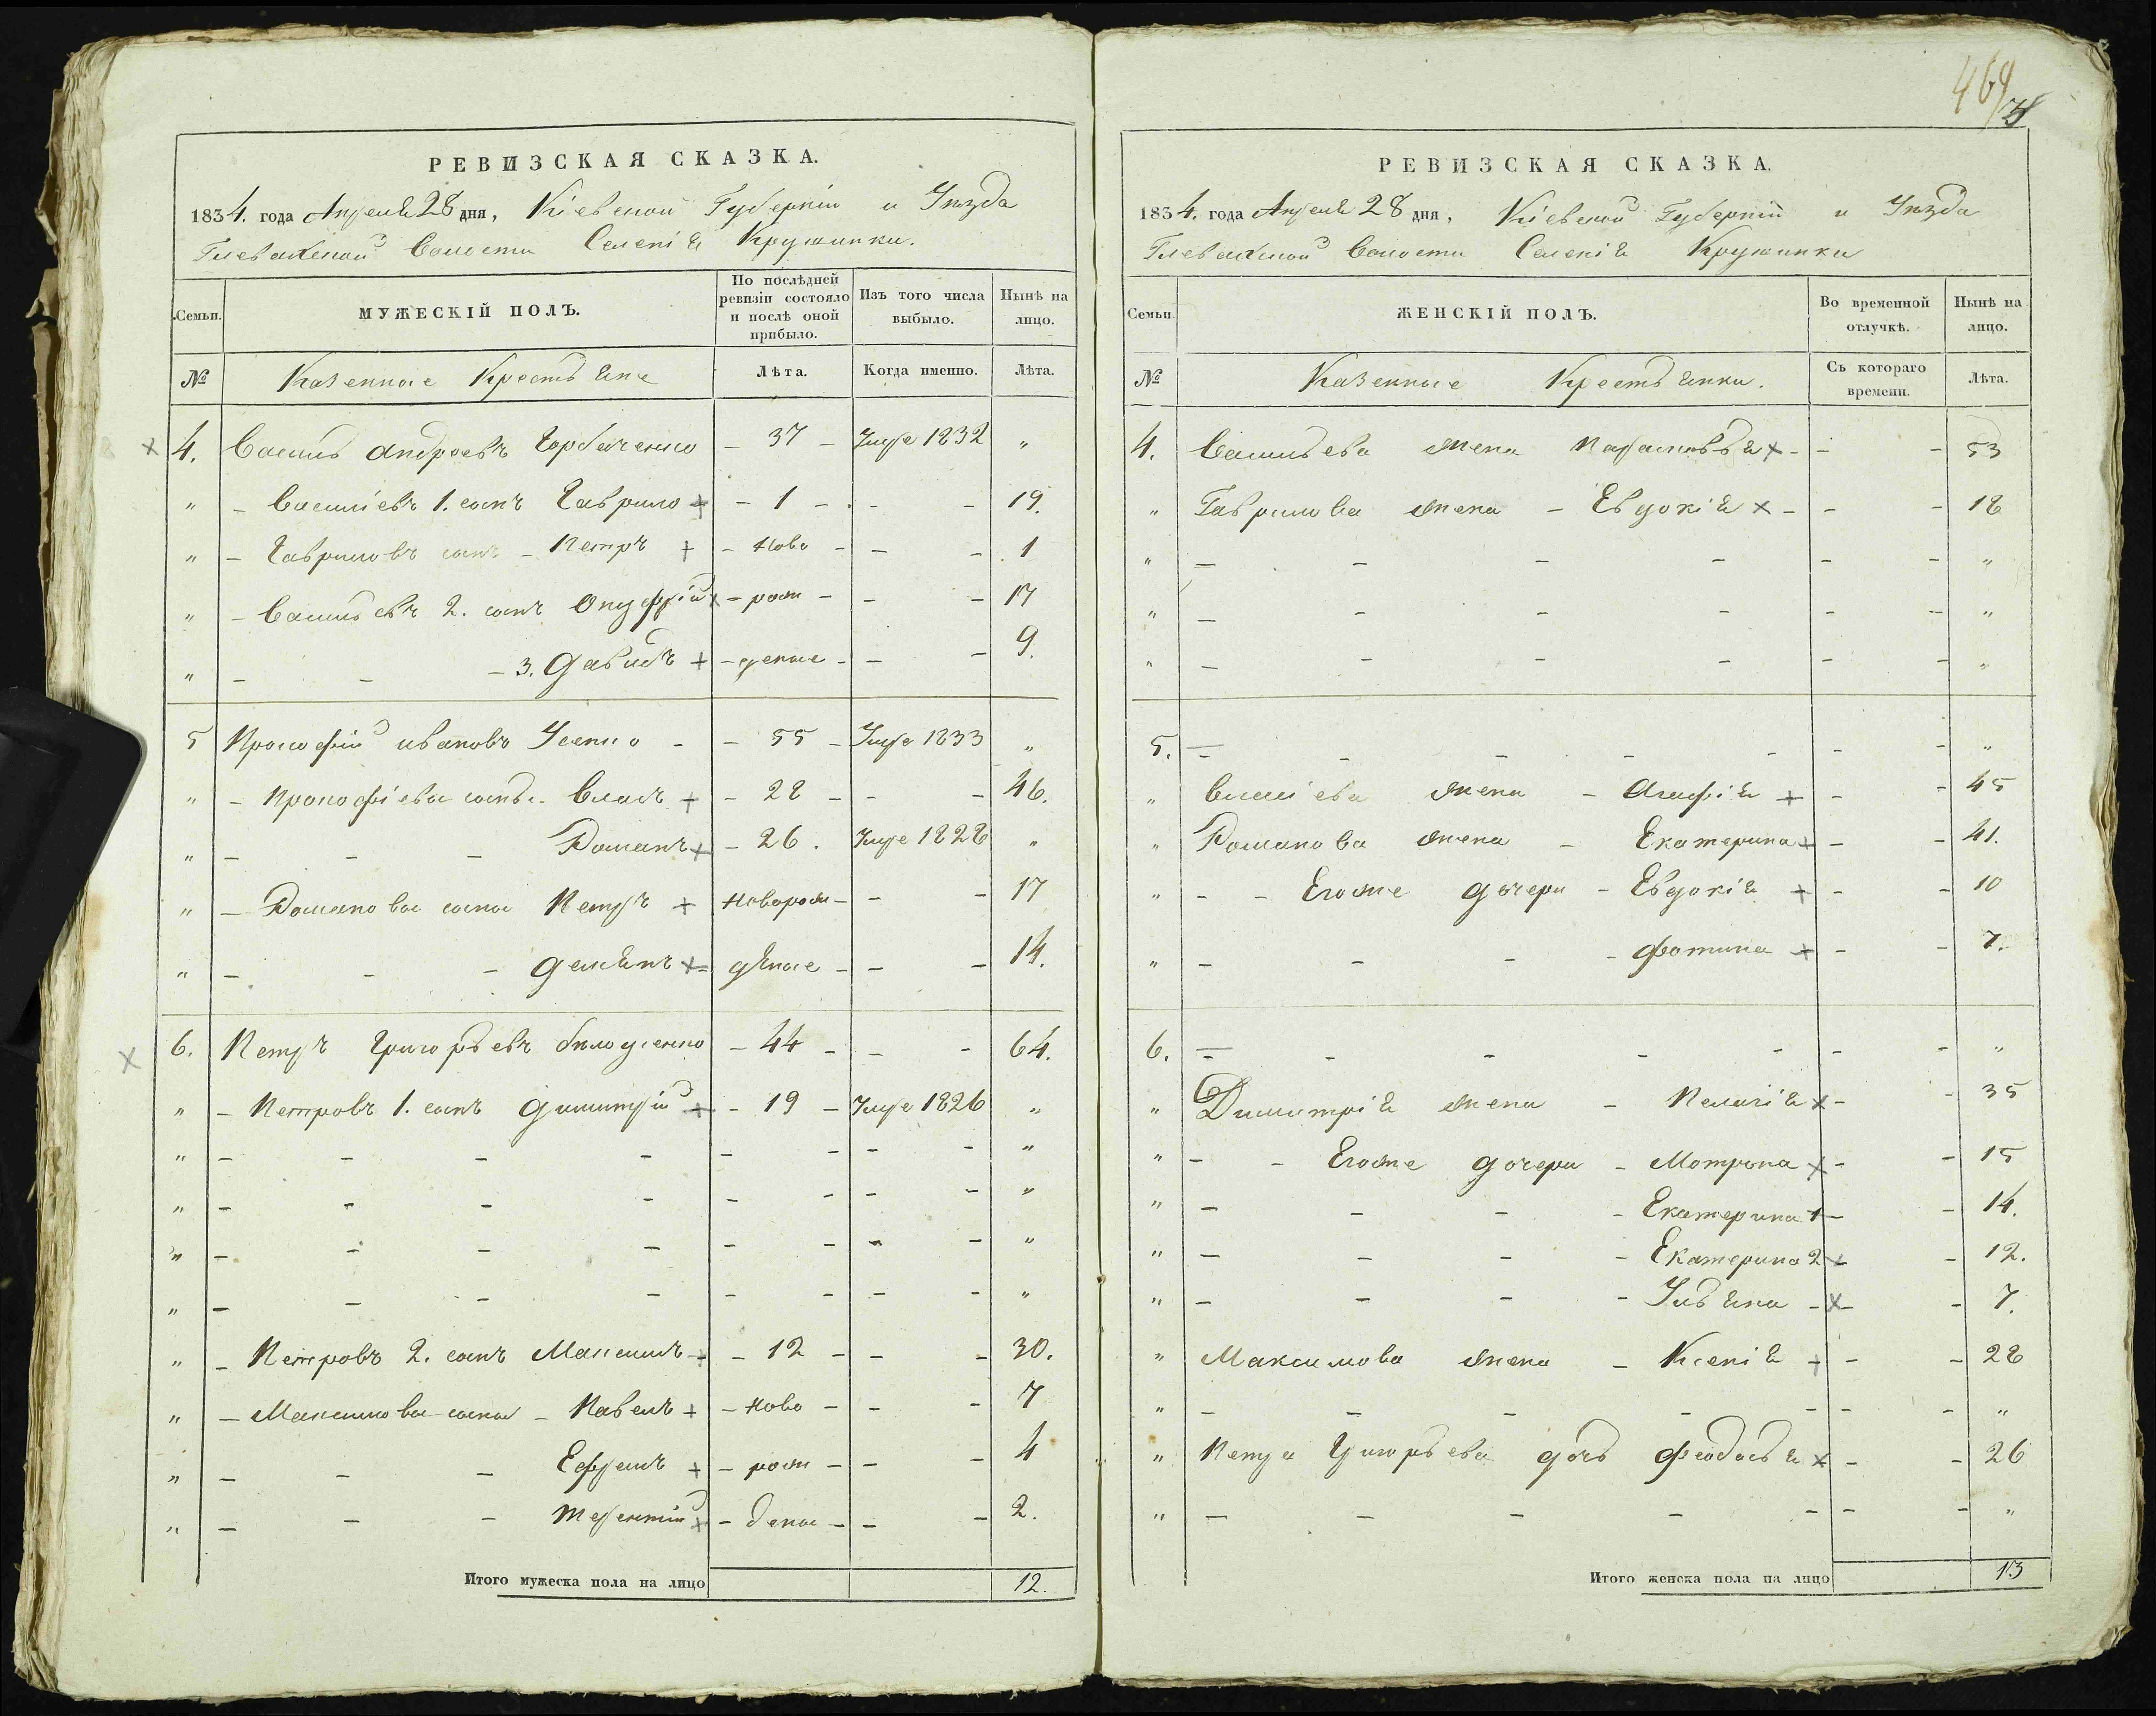 РЕВИЗСКАЯ СКАЗКА.
1834. года Апреля 28 дня, Кіевской Губерніи и Уѣзда
Глевахской Волости Селенія Кружики.
Семьи. МУЖЕСКІЙ ПОЛЪ. По послѣдней ревизіи состояло и послѣ оной прибыло. Изъ того числа выбыло. Нынѣ на лицо.
№ Казенные Крестьяне Лѣта. Когда именно. Лѣта.
4. Василь Андреевъ Горбаченко - 37 - Умре 1832 "
" - Василіевъ 1. сынъ Гаврило - 1 - - - 19.
" - Гавриловъ сынъ - Петръ - Ново - - - 1
" - Васильевъ 2. сынъ Онуфрій - рож - - - 17
" - - - 3. Давидъ - деные - - - 9.
5 Прокофій ивановъ Усенко - - 55 - Умре 1833 "
" - Прокофіевы сынъя. Власъ - 28 - - - 46.
" - - - Романъ - 26. Умре 1828 "
" - Романовы сыны Петръ Неворож - - - 17
" - - - Демянъ дѣные - - - 14.
6. Петръ Григорьевъ - 44 - - - 64.
" - Петровъ 1. сынъ Димитрій - 19 - Умре 1826 "
" - - - - - - - - "
" - - - - - - - - "
" - - - - - - - - "
" - - - - - - - - "
" - Петровъ 2. сынъ Максимъ - 12 - - - 30.
" - Максимовы сыны - Павелъ - Ново - - - 7
" - - - Ефремъ - рож - - - 4
" - - - Терентій - дены - - - 2.
Итого мужеска пола на лицо 12.
469
РЕВИЗСКАЯ СКАЗКА.
1834. года Апреля 28 дня, Кіевской Губерніи и Уѣзда
Глевахской Волости Селенія Кружики
Семьи. ЖЕНСКІЙ ПОЛЪ. Во временной отлучкѣ. Нынѣ на лицо.
№ Казенные Крестьянки. Съ котораго времени. Лѣта.
4. Васильева жена Парасковья - - - 53
" Гаврилова жена - Евдокія - - - 18
" - - - - - - "
" - - - - - - "
" - - - - - - "
5. - - - - - - - "
" Власіева жена - Агафія - - 45
" Романова жена - Екатерина - - 41.
" - - Егоже дочери - Евдокія - - 10
" - - - - Фотина - - 7.
6. - - - - - - - "
" Димитрія жена - Пелагія - - 35
" - - Егоже дочери - Мотрона - - 15
" - - - - Екатерина 1 - - 14.
" - - - - Екатерина 2 - - 12.
" - - - - Ульяна - - - 7.
" Максимова жена - Ксенія - - - 28
" - - - - - - - "
" Петра Григорьева дочь Феодосья - - 26
" - - - - - - - "
Итого женска пола на лицо 13